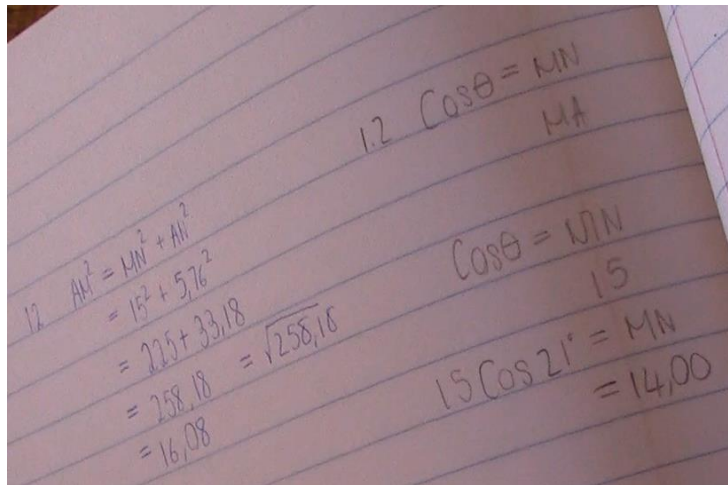 12 AM² = MN² + AN²
= 15² + 5,76²
= 225 + 33,18
= 258,18 = √258,18
= 16,08
1.2 Cosθ = MN
MA
Cosθ = MN
15
15 Cos 21° = MN
= 14,00